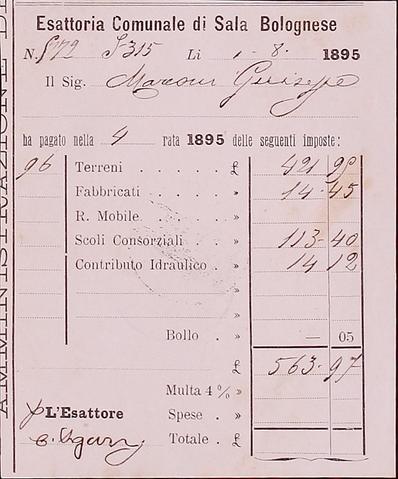 Esattoria Comunale di Sala Bolognese
N. 572 S-315 Li 1 - 8. 1895
Il Sig. Giuseppe
ha pagato nella 4 rata 1895 delle seguenti imposte:
96 Terreni . . . . . £
Fabbricati . . . . » 14.45
R. Mobile . . . . »
Scoli Consorziali . . » 113-40
Contributo Idraulico . » 14 12
Bollo . » — 05
£ 563.97
Multa 4 % »
L'Esattore Spese . »
Totale . £
AMMINISTRAZIONE DE